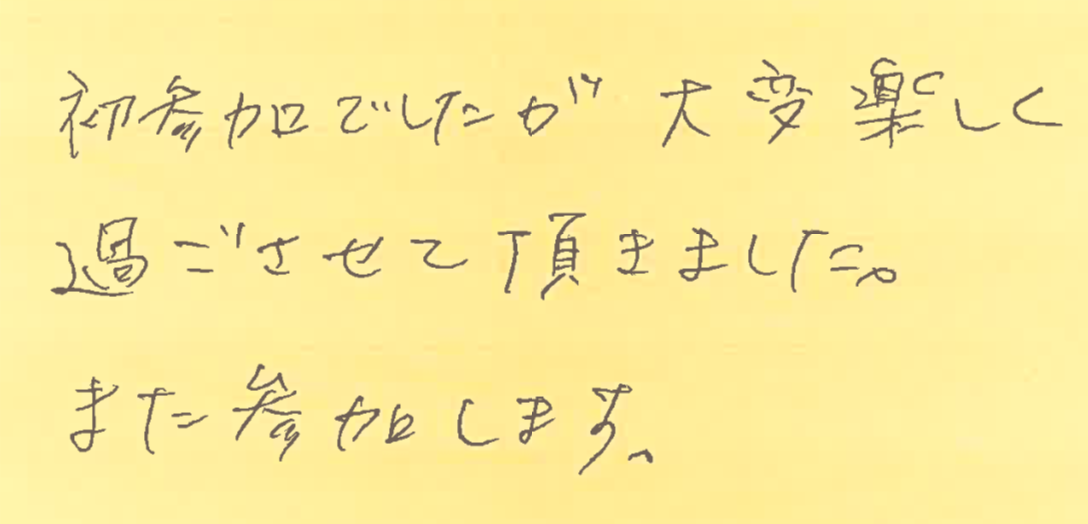 初参加でしたが大変楽しく
過ごさせて頂きました。
また参加します。